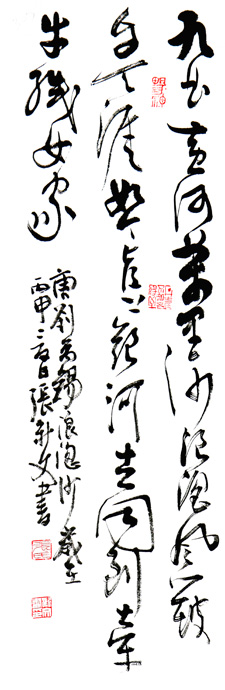 九曲黄河萬里沙浪淘風簸
自天涯如今直上銀河去同到牽
牛織女家
唐劉禹錫浪淘沙歲在
丙申張新文書